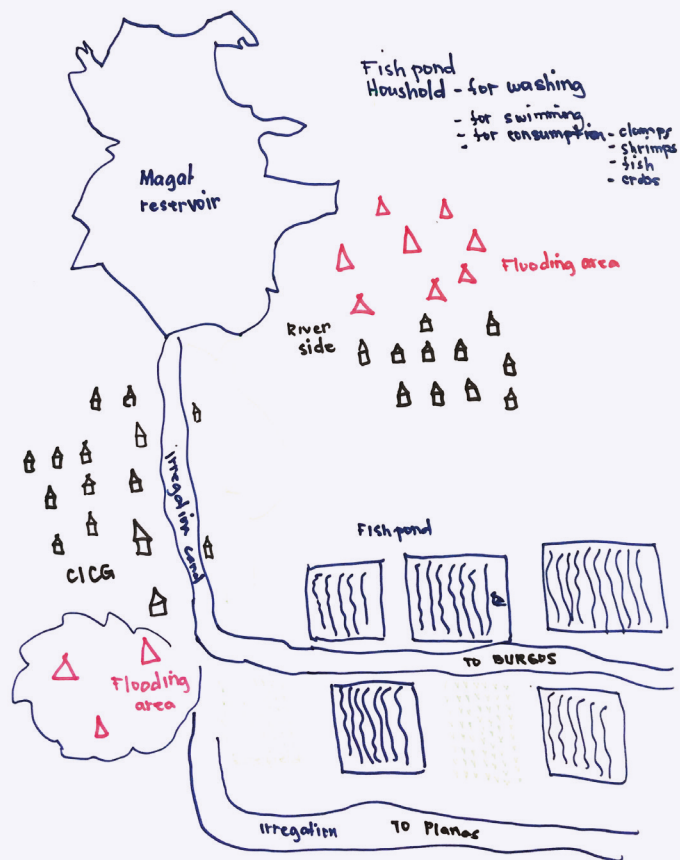 Fish pond
Houshold - for washing
- for swimming
- for consumption - clamps
- shrimps
- fish
- crabs
Magat
reservoir
Flooding area
River
side
Irregation canal
CICG
Fish pond
TO BURGOS
Flooding
area
Irregation TO Planas